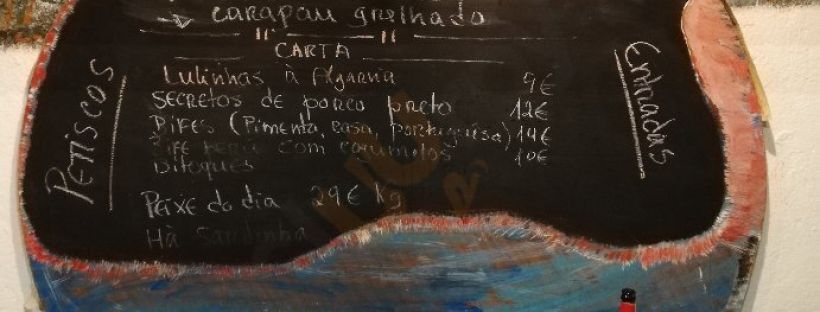 carapau grelhado
CARTA
Petiscos
Entradas
Lulinhas à Algarvia 9€
SECRETOS DE PORCO PRETO 12€
BIFES (Pimenta, casa, portuguesa) 14€
com cogumelos
Bitoques 10€
PEIXE do dia 29€ Kg
Há Sardinha